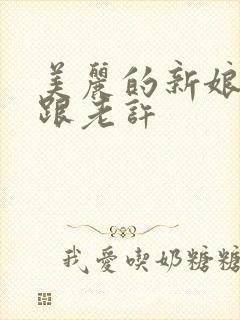 美麗的新娘
跟老許
我愛喫奶糖糖